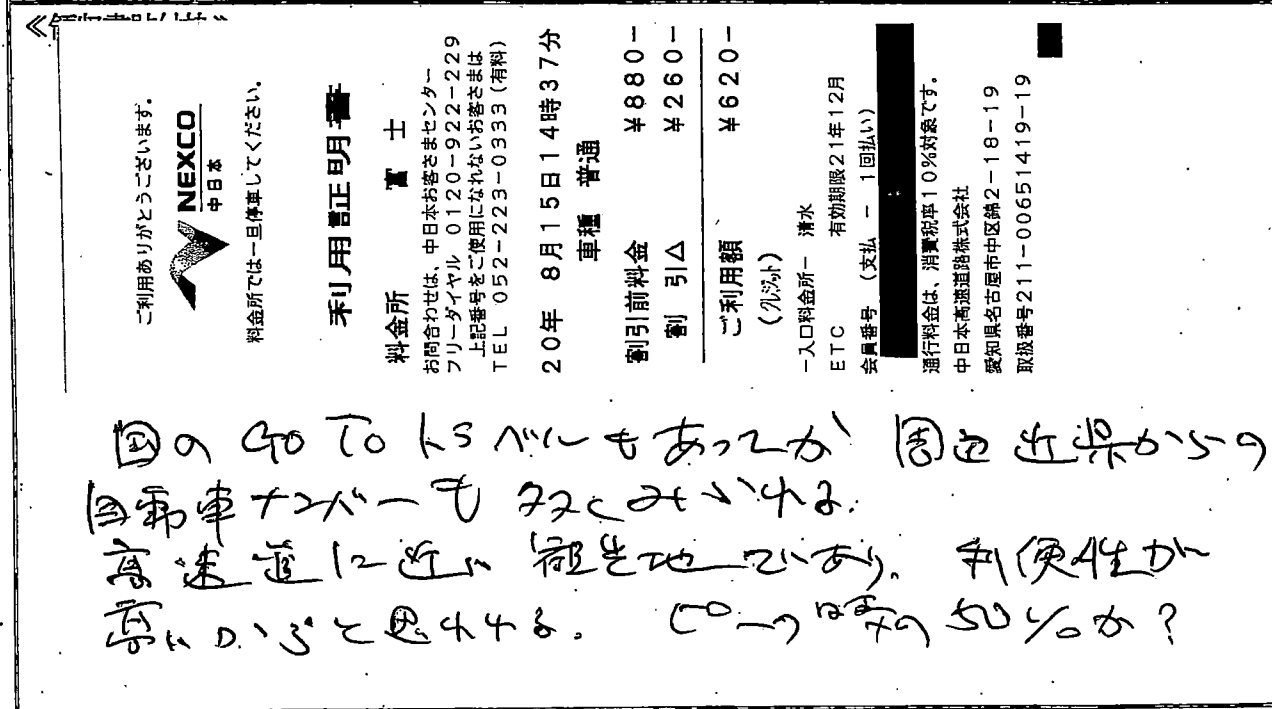 ご利用ありがとうございます。
NEXCO
中日本
料金所では一旦停車してください。
利用証明書
料金所 富士
お問合わせは、中日本お客さまセンター
フリーダイヤル 0120-922-229
上記番号をご使用になれないお客さまは
TEL 052-223-0333 (有料)
20年 8月15日14時37分
車種 普通
割引前料金 ¥880-
割 引△ ¥260-
ご利用額 ¥620-
(クレジット)
-入口料金所- 清水
ETC 有効期限21年12月
会員番号 (支払 - 1回払い)
通行料金は、消費税率10%対象です。
中日本高速道路株式会社
愛知県名古屋市中区錦2-18-19
取扱番号211-00651419-19
国の GO TO トラベルもあってか 周辺近県からの
自動車ナンバーも 多くみられる.
高速道に近い 観光地であり、利便性が
高いからと思われる. ピーク時の 50%か?